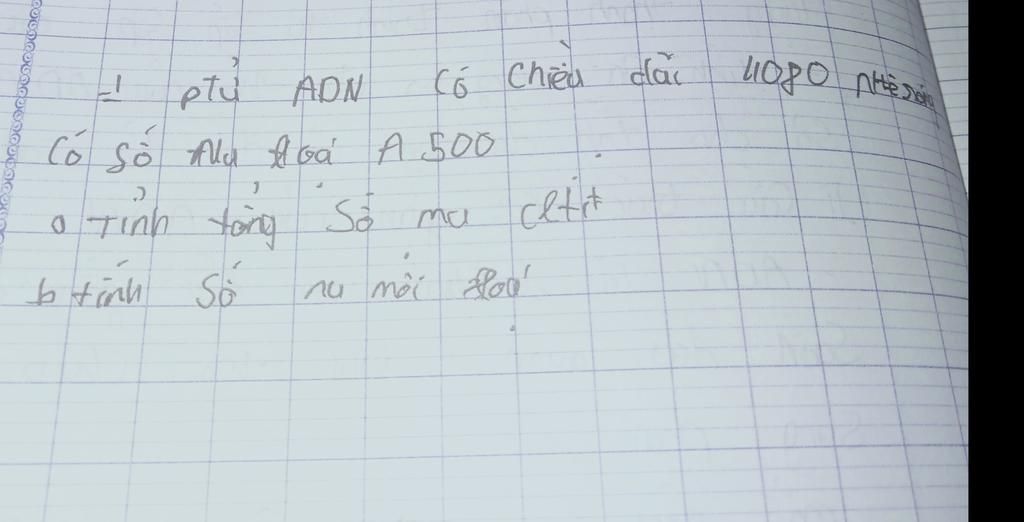 1 ptử ADN Có chiều dài 4080
Có số Nu loại A 500
a Tính tổng Số nu
b tính Số nu mỗi loại